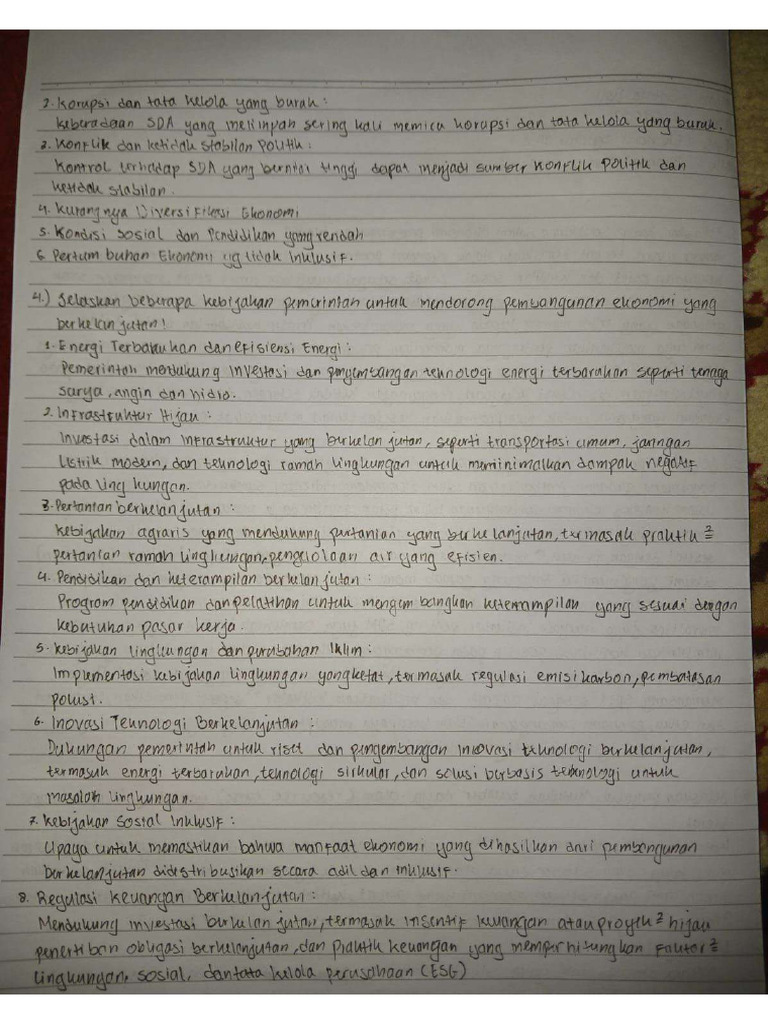 2. Korupsi dan tata kelola yang buruk :
Keberadaan SDA yang melimpah sering kali memicu korupsi dan tata kelola yang buruk.
3. Konflik dan ketidak stabilan Politik :
Kontrol terhadap SDA yang bernilai tinggi dapat menjadi sumber konflik politik dan
ketidak stabilan.
4. Kurangnya Diversifikasi Ekonomi
5. Kondisi Sosial dan Pendidikan yang rendah
6. Pertum buhan Ekonomi yg tidak Inklusif.
4.) Jelaskan beberapa kebijakan pemerintah untuk mendorong pembangunan ekonomi yang
berkelanjutan!
1. Energi Terbarukan dan efisiensi Energi :
Pemerintah mendukung investasi dan pengembangan teknologi energi terbarukan seperti tenaga
surya, angin dan hidro.
2. Infrastruktur Hijau :
Investasi dalam infrastruktur yang berkelanjutan, seperti transportasi umum, jaringan
listrik modern, dan teknologi ramah lingkungan untuk meminimalkan dampak negatif
pada ling kungan.
3. Pertanian berkelanjutan :
Kebijakan agraris yang mendukung pertanian yang berkelanjutan, termasuk praktik ²
pertanian ramah lingkungan, pengelolaan air yang efisien.
4. Pendidikan dan keterampilan berkelanjutan :
Program pendidikan dan pelatihan untuk mengem bangkan keterampilan yang sesuai dengan
kebutuhan pasar kerja.
5. Kebijakan lingkungan dan perubahan Iklim :
Implementasi kebijakan lingkungan yang ketat, termasuk regulasi emisi karbon, pembatasan
polusi.
6. Inovasi Teknologi Berkelanjutan :
Dukungan pemerintah untuk riset dan pengembangan inovasi teknologi berkelanjutan,
termasuk energi terbarukan, teknologi sirkular, dan solusi berbasis teknologi untuk
masalah lingkungan.
7. Kebijakan Sosial Inklusif :
Upaya untuk memastikan bahwa manfaat ekonomi yang dihasilkan dari pembangunan
berkelanjutan didistribusikan secara adil dan inklusif.
8. Regulasi Keuangan Berkelanjutan :
Mendukung investasi berkelanjutan, termasuk insentif keuangan atau proyek ² hijau
penertiban obligasi berkelanjutan, dan praktik keuangan yang memperhitungkan faktor ²
lingkungan, sosial, dan tata kelola perusahaan (ESG)